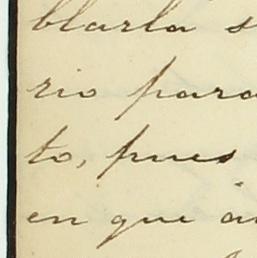 blarla s
rio para
to, pues
en que